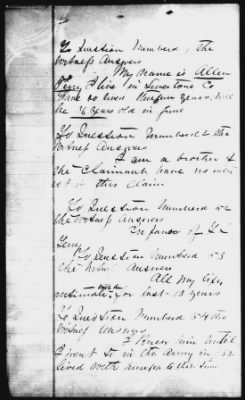 To Question Numberd 1 the
Witness Answers
My Name is Allen
Terry I live in Limestone Co
have so lived years will
be 38 years old in June
To Question Numberd 2 the
Witness Answers
I am a brother of
the Claimant have no inter
est in this Claim
To Question Numberd 52
the Witness Answers
In favor of
Terry
To Question Numberd 53
the Witn Answers
All my life,
intimately for last 13 years
To Question Numberd 54 the
Witness Answers
I knew him until
I went to in the Army in 62
lived with to that time